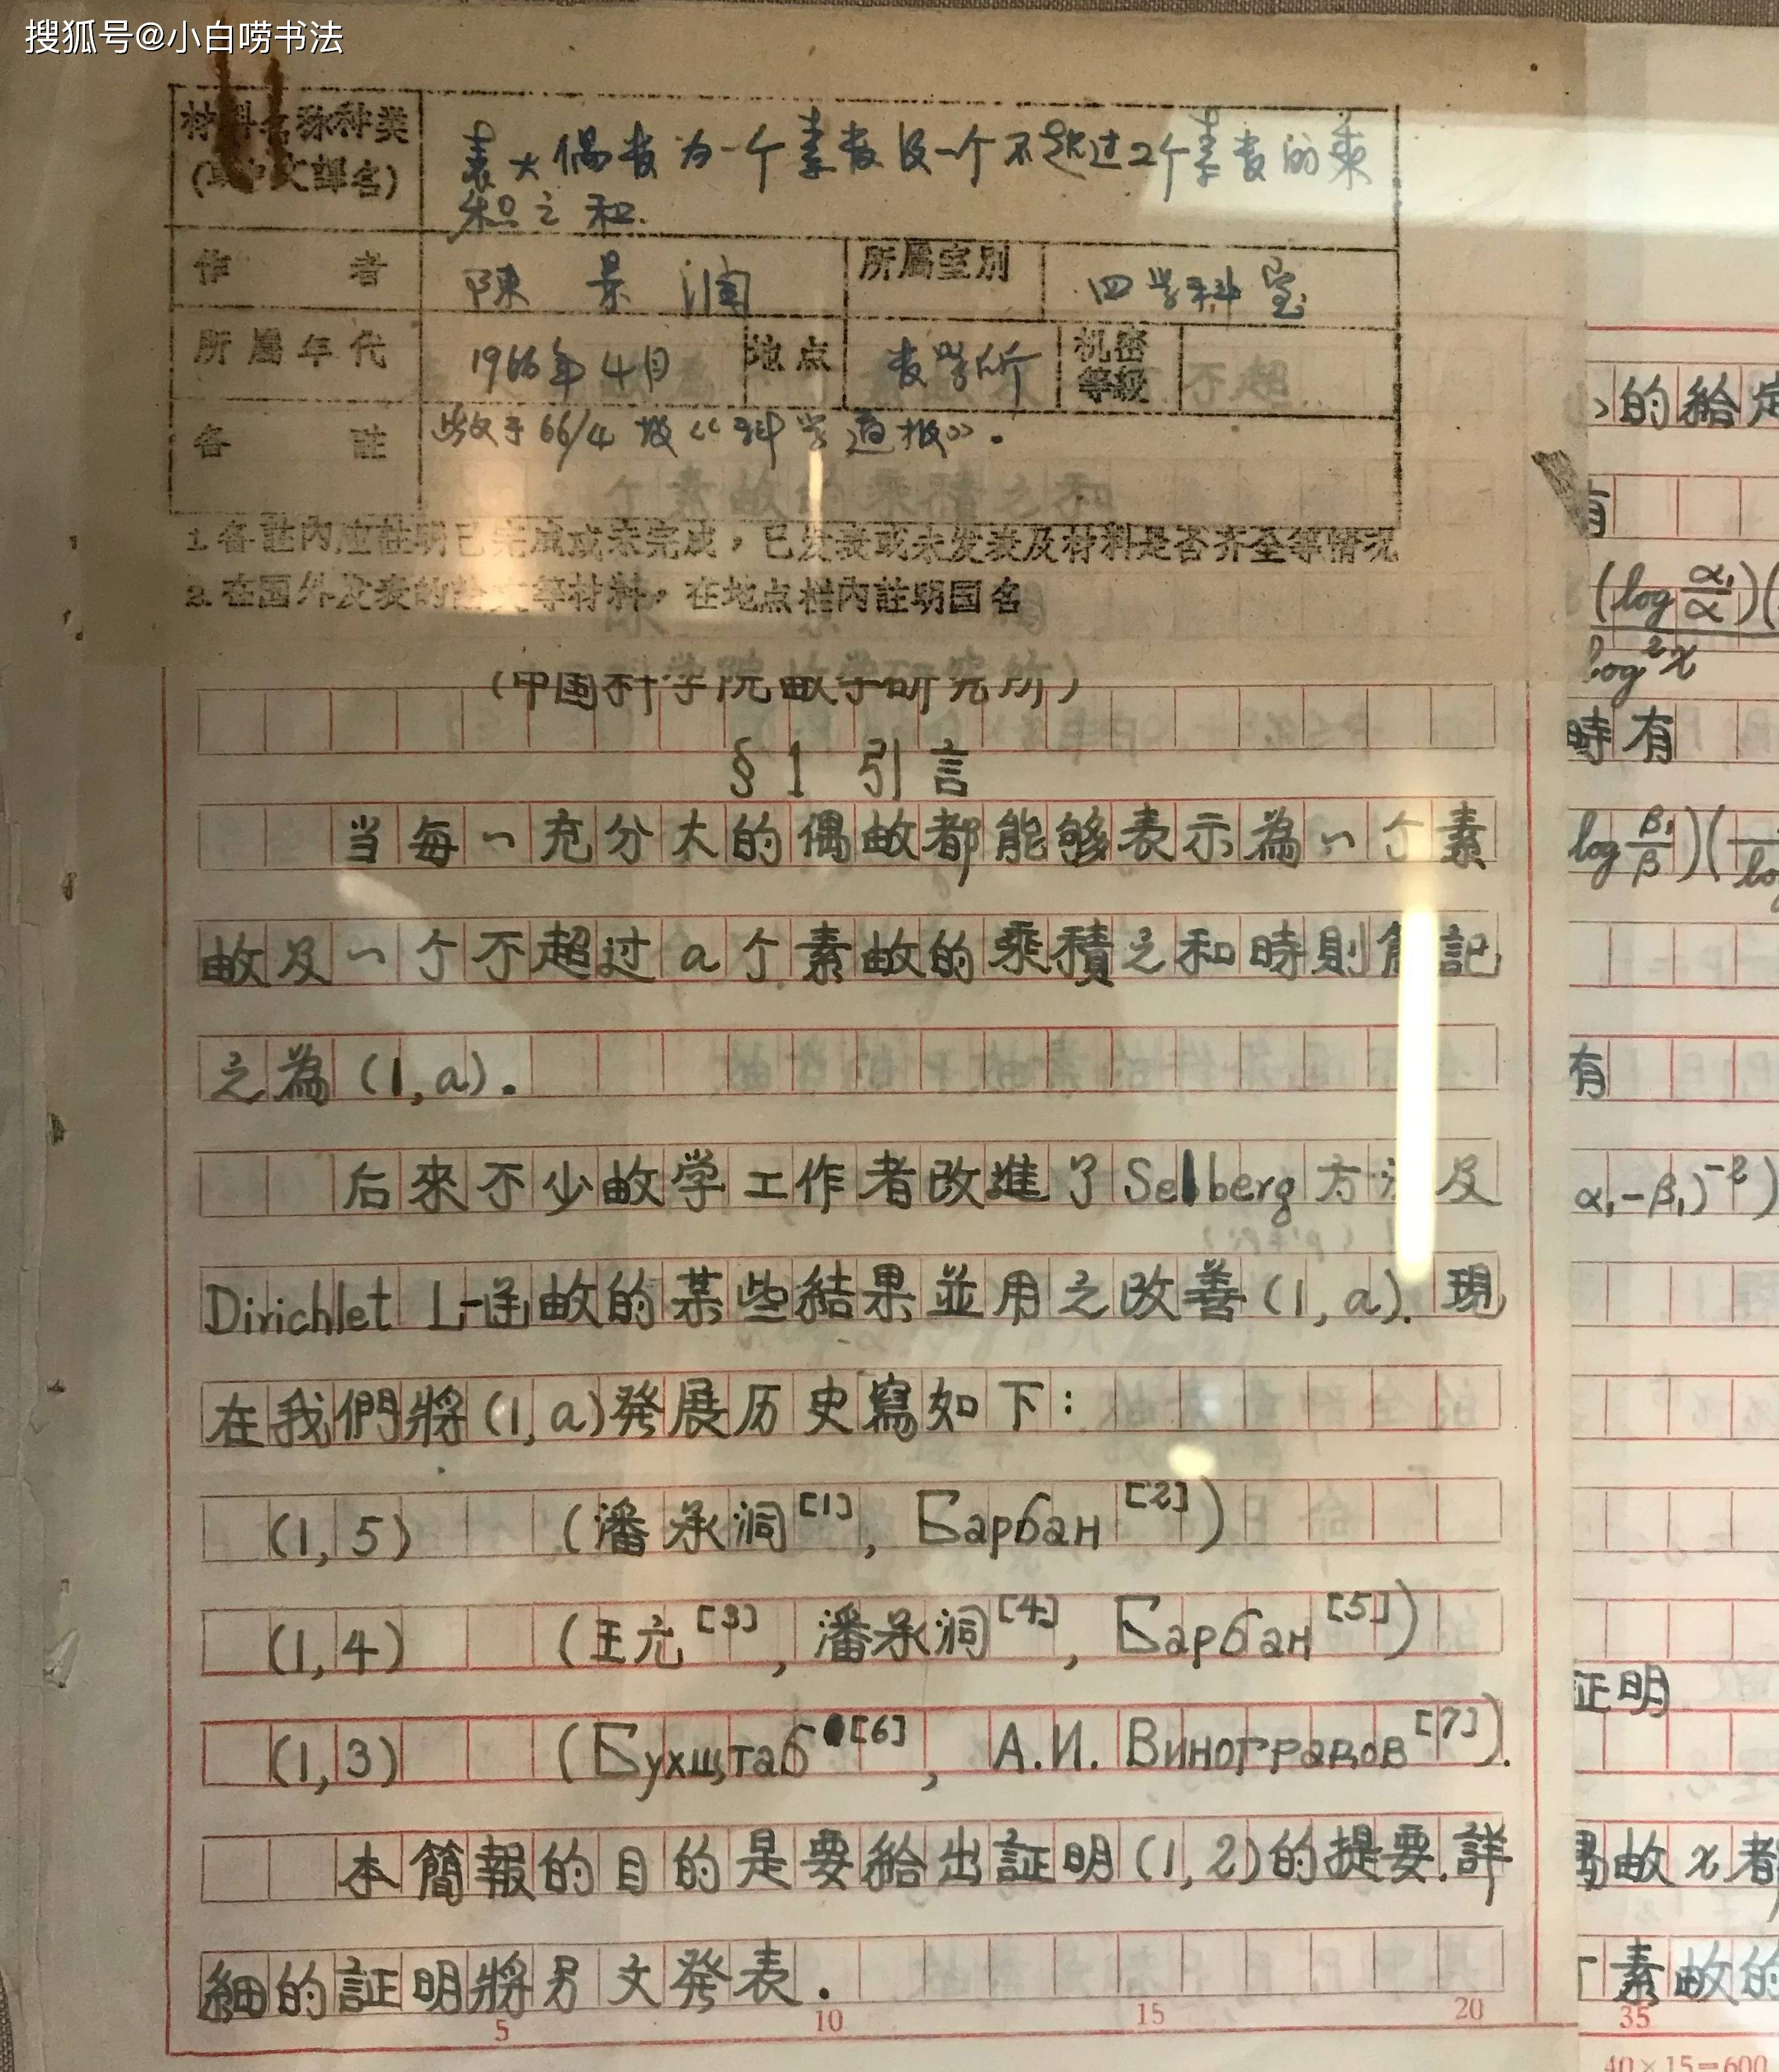 搜狐号@小白唠书法
材料名称种类
(或中文譯名)
表大偶数为一个素数及一个不超过2个素数的乘
积之和.
作者 陳景润 所屬室別 四学科室
所屬年代 1966年4月 地点 数学所 机密等級
备註 66/4 《科学通报》.
1.备註内应註明已完成或未完成，已发表或未发表及材料是否齐全等情况
2.在国外发表的论文等材料，在地点栏内註明国名
(中国科学院畝学研究所)
§1 引言
当每一充分大的偶畝都能够表示為一个素
畝及一个不超过a个素畝的乘積之和時則簡記
之為(1,a).
后來不少畝学工作者改進了Selberg方法及
Dirichlet L-函畝的某些結果並用之改善(1,a).現
在我們將(1,a)発展历史寫如下:
(1,5) (潘承洞[1], Барбан[2])
(1,4) (王元[3], 潘承洞[4], Барбан[5])
(1,3) (Бухштаб[6], А.И. Виноградов[7]).
本簡報的目的是要給出証明(1,2)的提要.詳
細的証明將另文発表.
5 10 15 20
的給定
有
(log α₁/α)(
log²x
時有
log β₁/β)(
有
α₁-β₁)⁻²)
証明
偶畝x者
素畝的
35
40×15=600